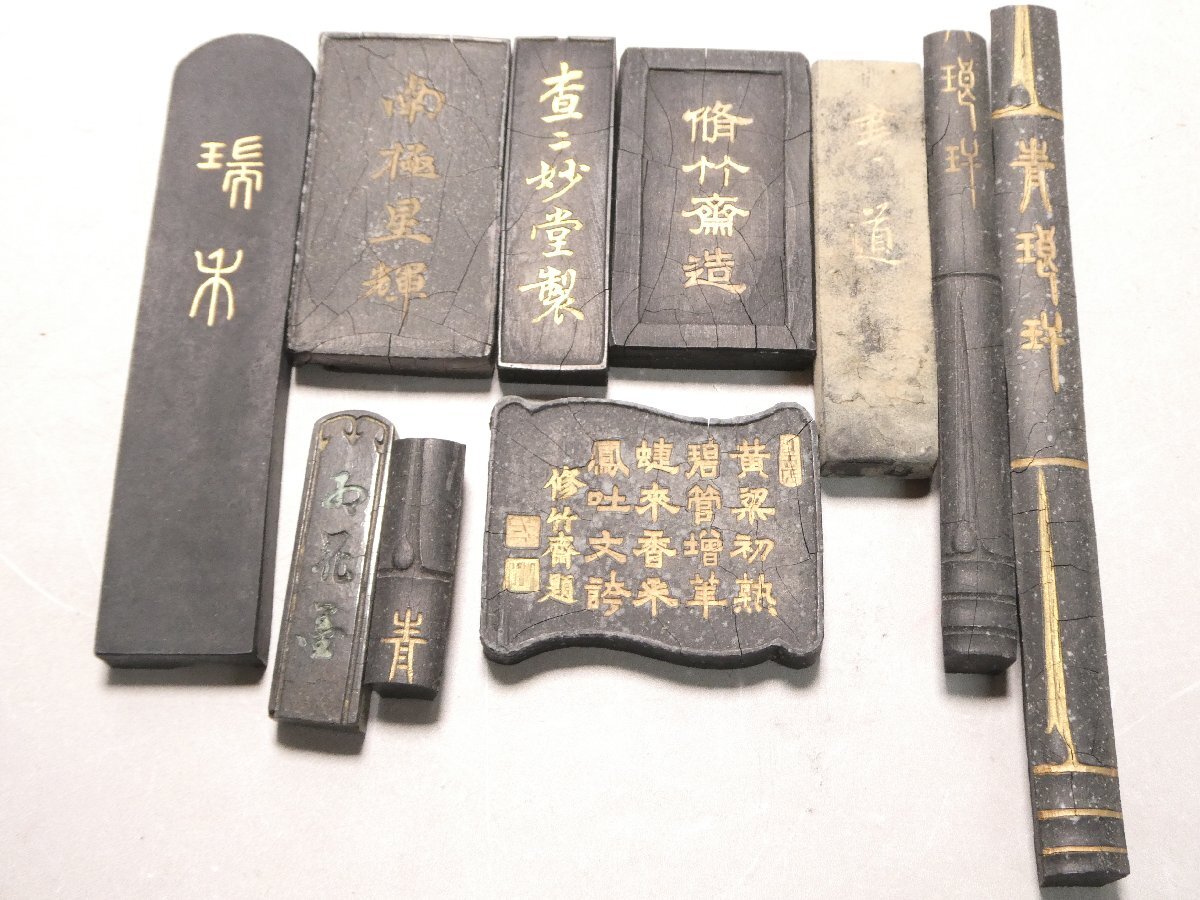 瑞
南極星輝
查二妙堂製
脩竹齋造
道
琅玕
青琅玕
墨
青
黃粱初熟
碧管增華
蜨來香采
鳳吐文誇
修竹齋題